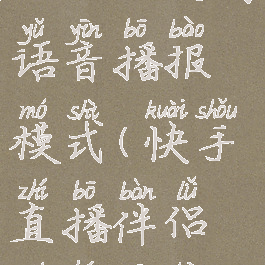 yǔ yīn bō bào
语音播报
mó shì kuài shǒu
模式(快手
zhí bō bàn lǚ
直播伴侣